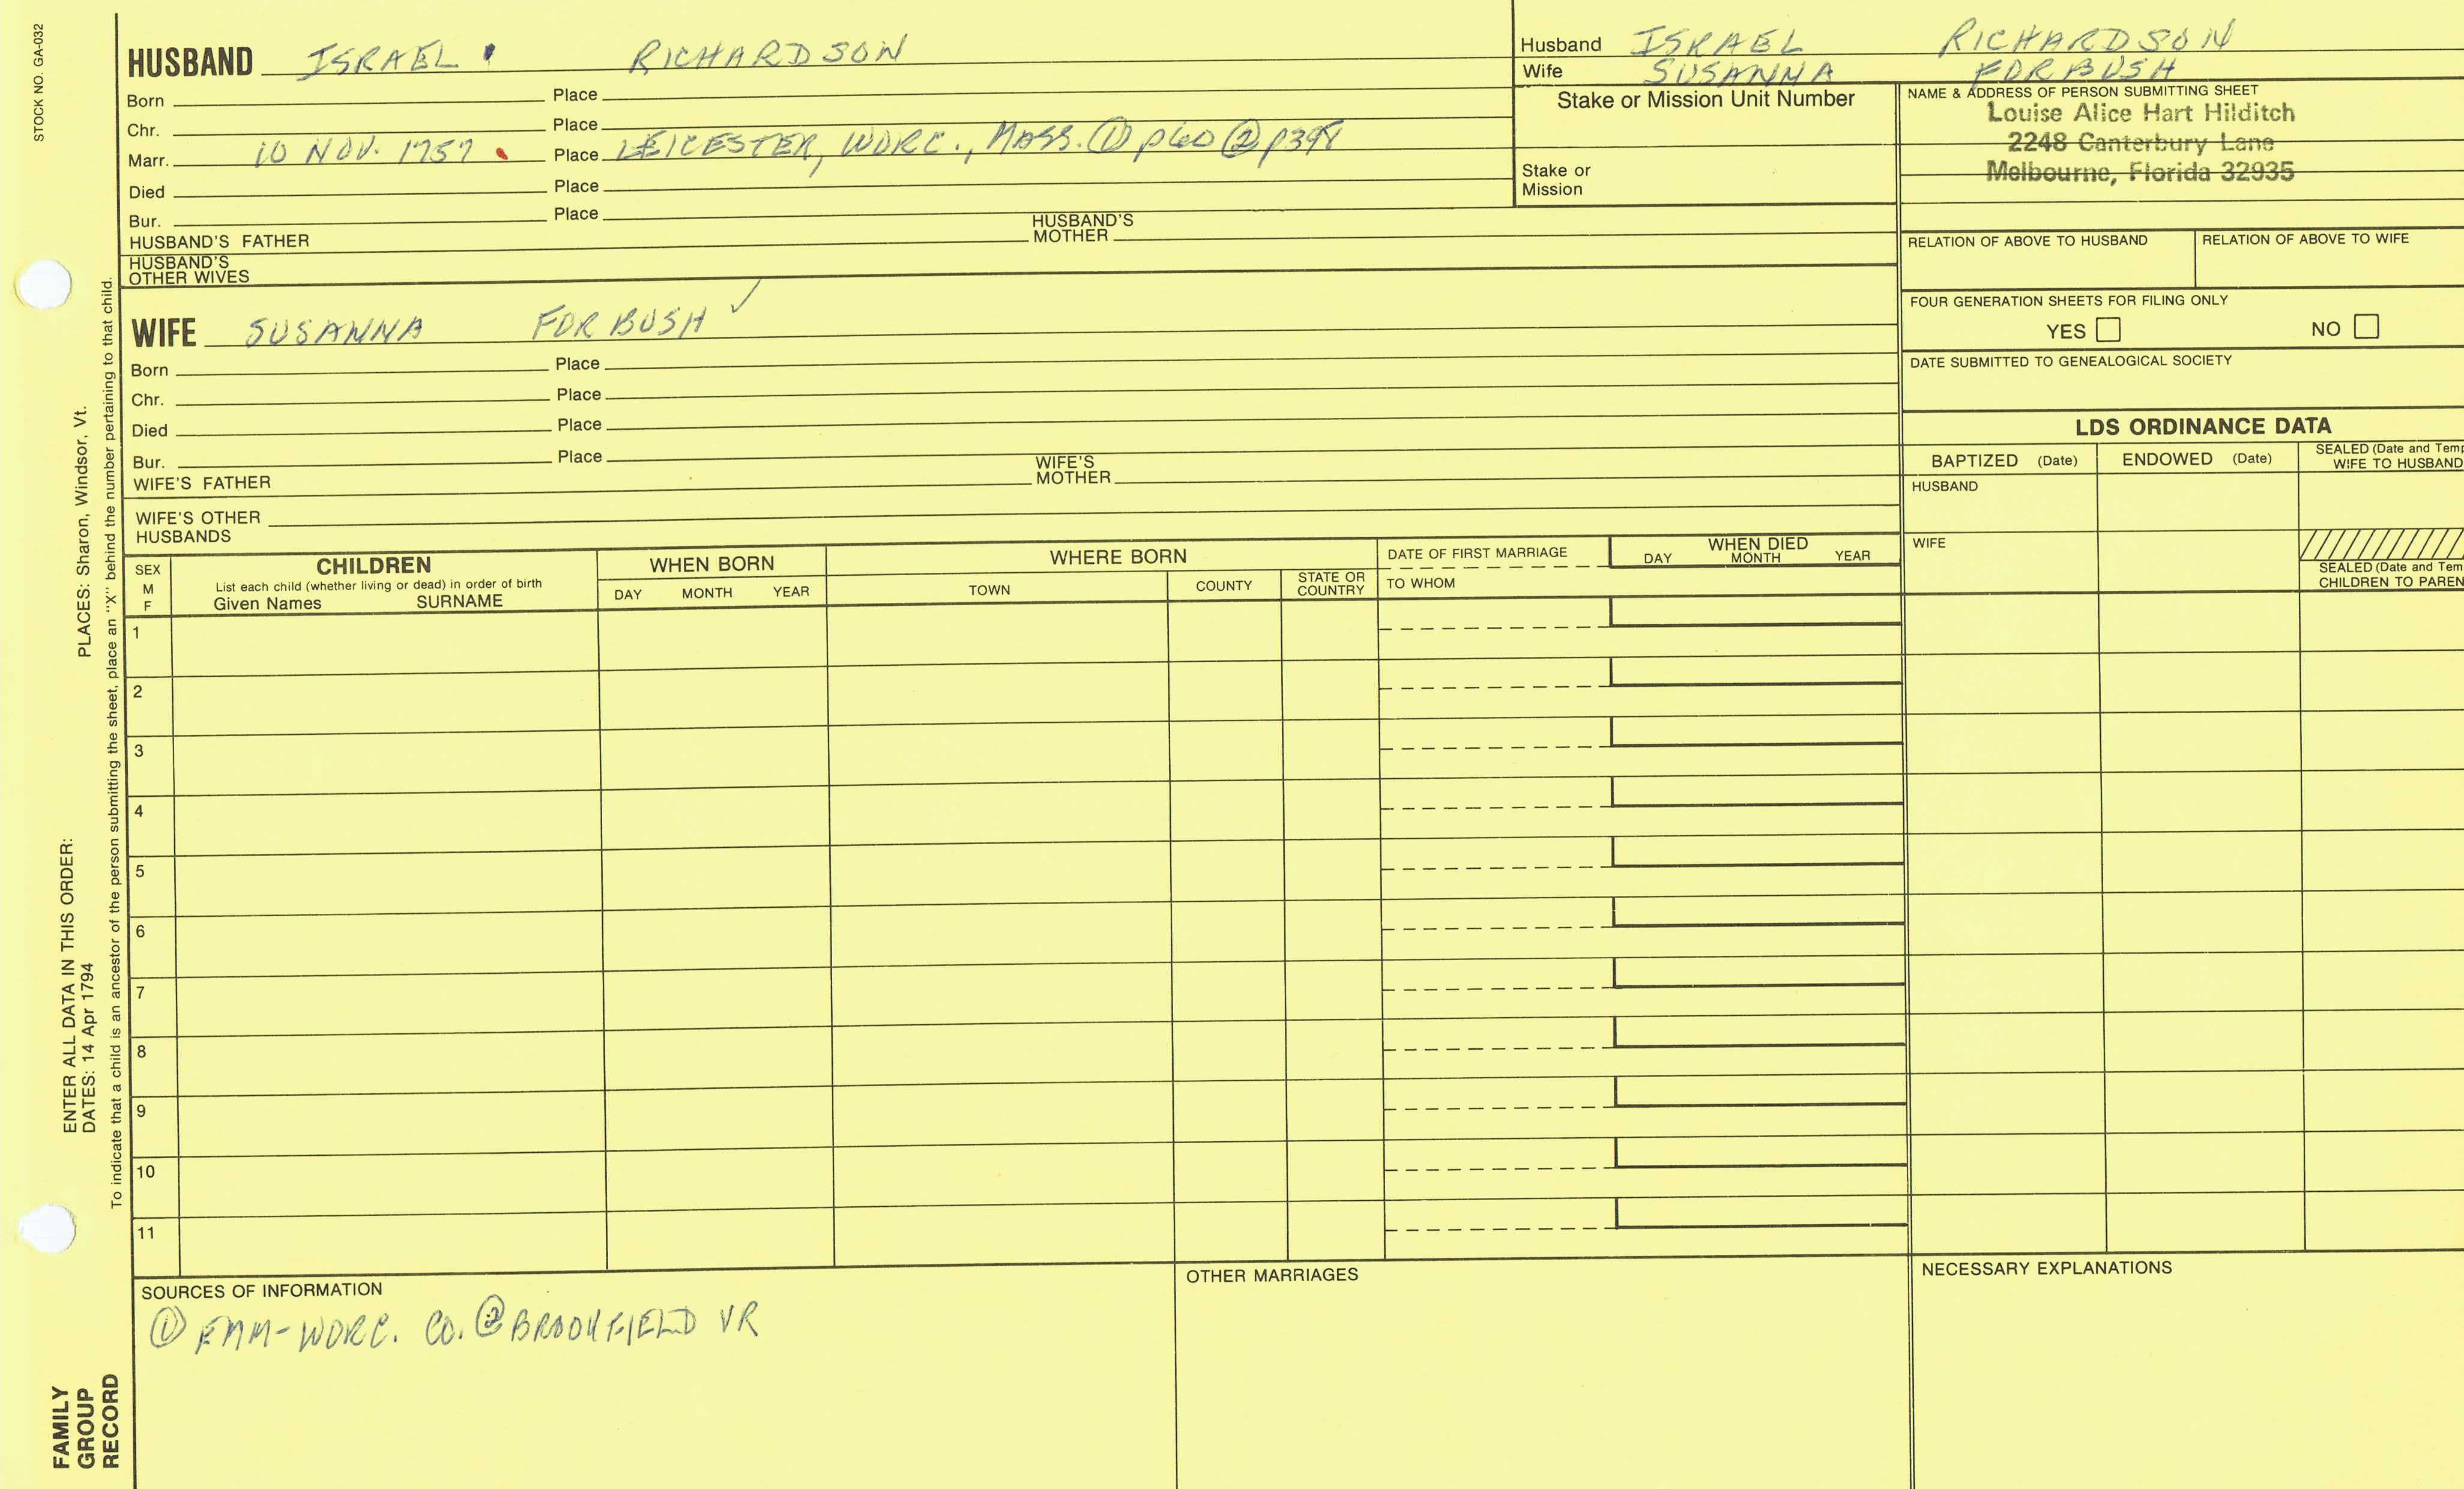 STOCK NO. GA-032
HUSBAND ISRAEL RICHARDSON
Born Place
Chr. Place
Marr. 10 NOV. 1757 Place LEICESTER, WORC., MASS. ① p60 ② p398
Died Place
Bur. Place
HUSBAND'S FATHER HUSBAND'S MOTHER
HUSBAND'S OTHER WIVES
WIFE SUSANNA FORBUSH ✓
Born Place
Chr. Place
Died Place
Bur. Place
WIFE'S FATHER WIFE'S MOTHER
WIFE'S OTHER HUSBANDS
Husband ISRAEL RICHARDSON
Wife SUSANNA FORBUSH
Stake or Mission Unit Number
Stake or Mission
NAME & ADDRESS OF PERSON SUBMITTING SHEET
Louise Alice Hart Hilditch
2248 Canterbury Lane
Melbourne, Florida 32935
RELATION OF ABOVE TO HUSBAND RELATION OF ABOVE TO WIFE
FOUR GENERATION SHEETS FOR FILING ONLY
YES NO
DATE SUBMITTED TO GENEALOGICAL SOCIETY
LDS ORDINANCE DATA
BAPTIZED (Date) ENDOWED (Date) SEALED (Date and Temp
WIFE TO HUSBAND
HUSBAND
WIFE
SEALED (Date and Tem
CHILDREN TO PAREN
SEX M F
CHILDREN
List each child (whether living or dead) in order of birth
Given Names SURNAME
WHEN BORN
DAY MONTH YEAR
WHERE BORN
TOWN COUNTY STATE OR COUNTRY
DATE OF FIRST MARRIAGE
TO WHOM
WHEN DIED
DAY MONTH YEAR
1
2
3
4
5
6
7
8
9
10
11
SOURCES OF INFORMATION
① FMM-WORC. CO. ② BROOKFIELD VR
OTHER MARRIAGES
NECESSARY EXPLANATIONS
ENTER ALL DATA IN THIS ORDER:
DATES: 14 Apr 1794 PLACES: Sharon, Windsor, Vt.
To indicate that a child is an ancestor of the person submitting the sheet, place an "X" behind the number pertaining to that child.
FAMILY
GROUP
RECORD